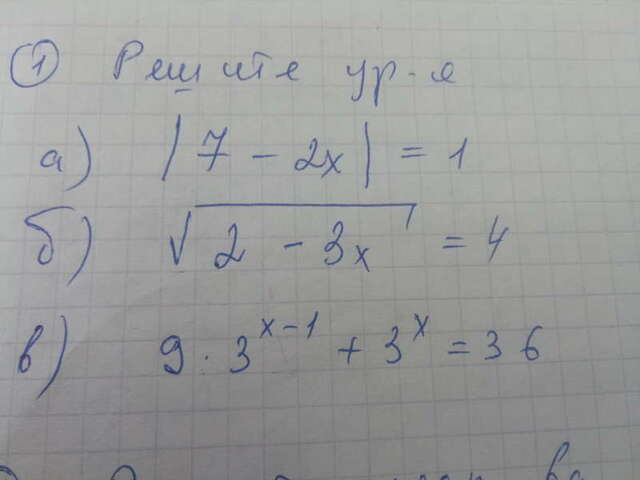 ① Решите ур-я
а) |7 - 2x| = 1
б) √(2 - 3x) = 4
в) 9 · 3^(x-1) + 3^x = 36